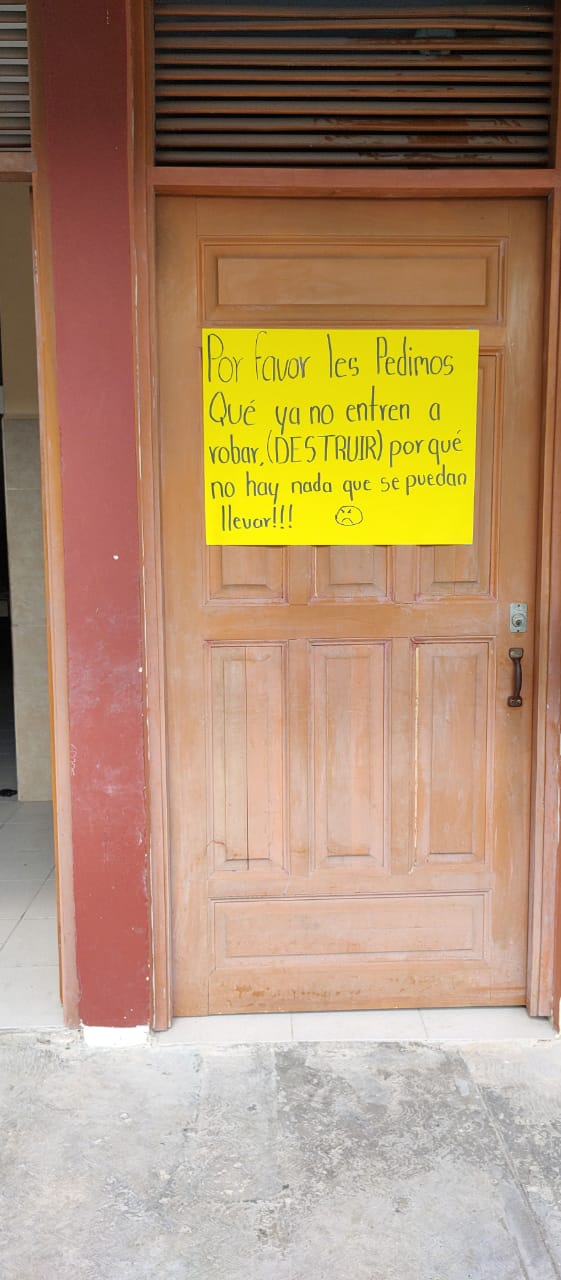 Por favor les Pedimos
Qué ya no entren a
robar, (DESTRUIR) por qué
no hay nada que se puedan
llevar!!!